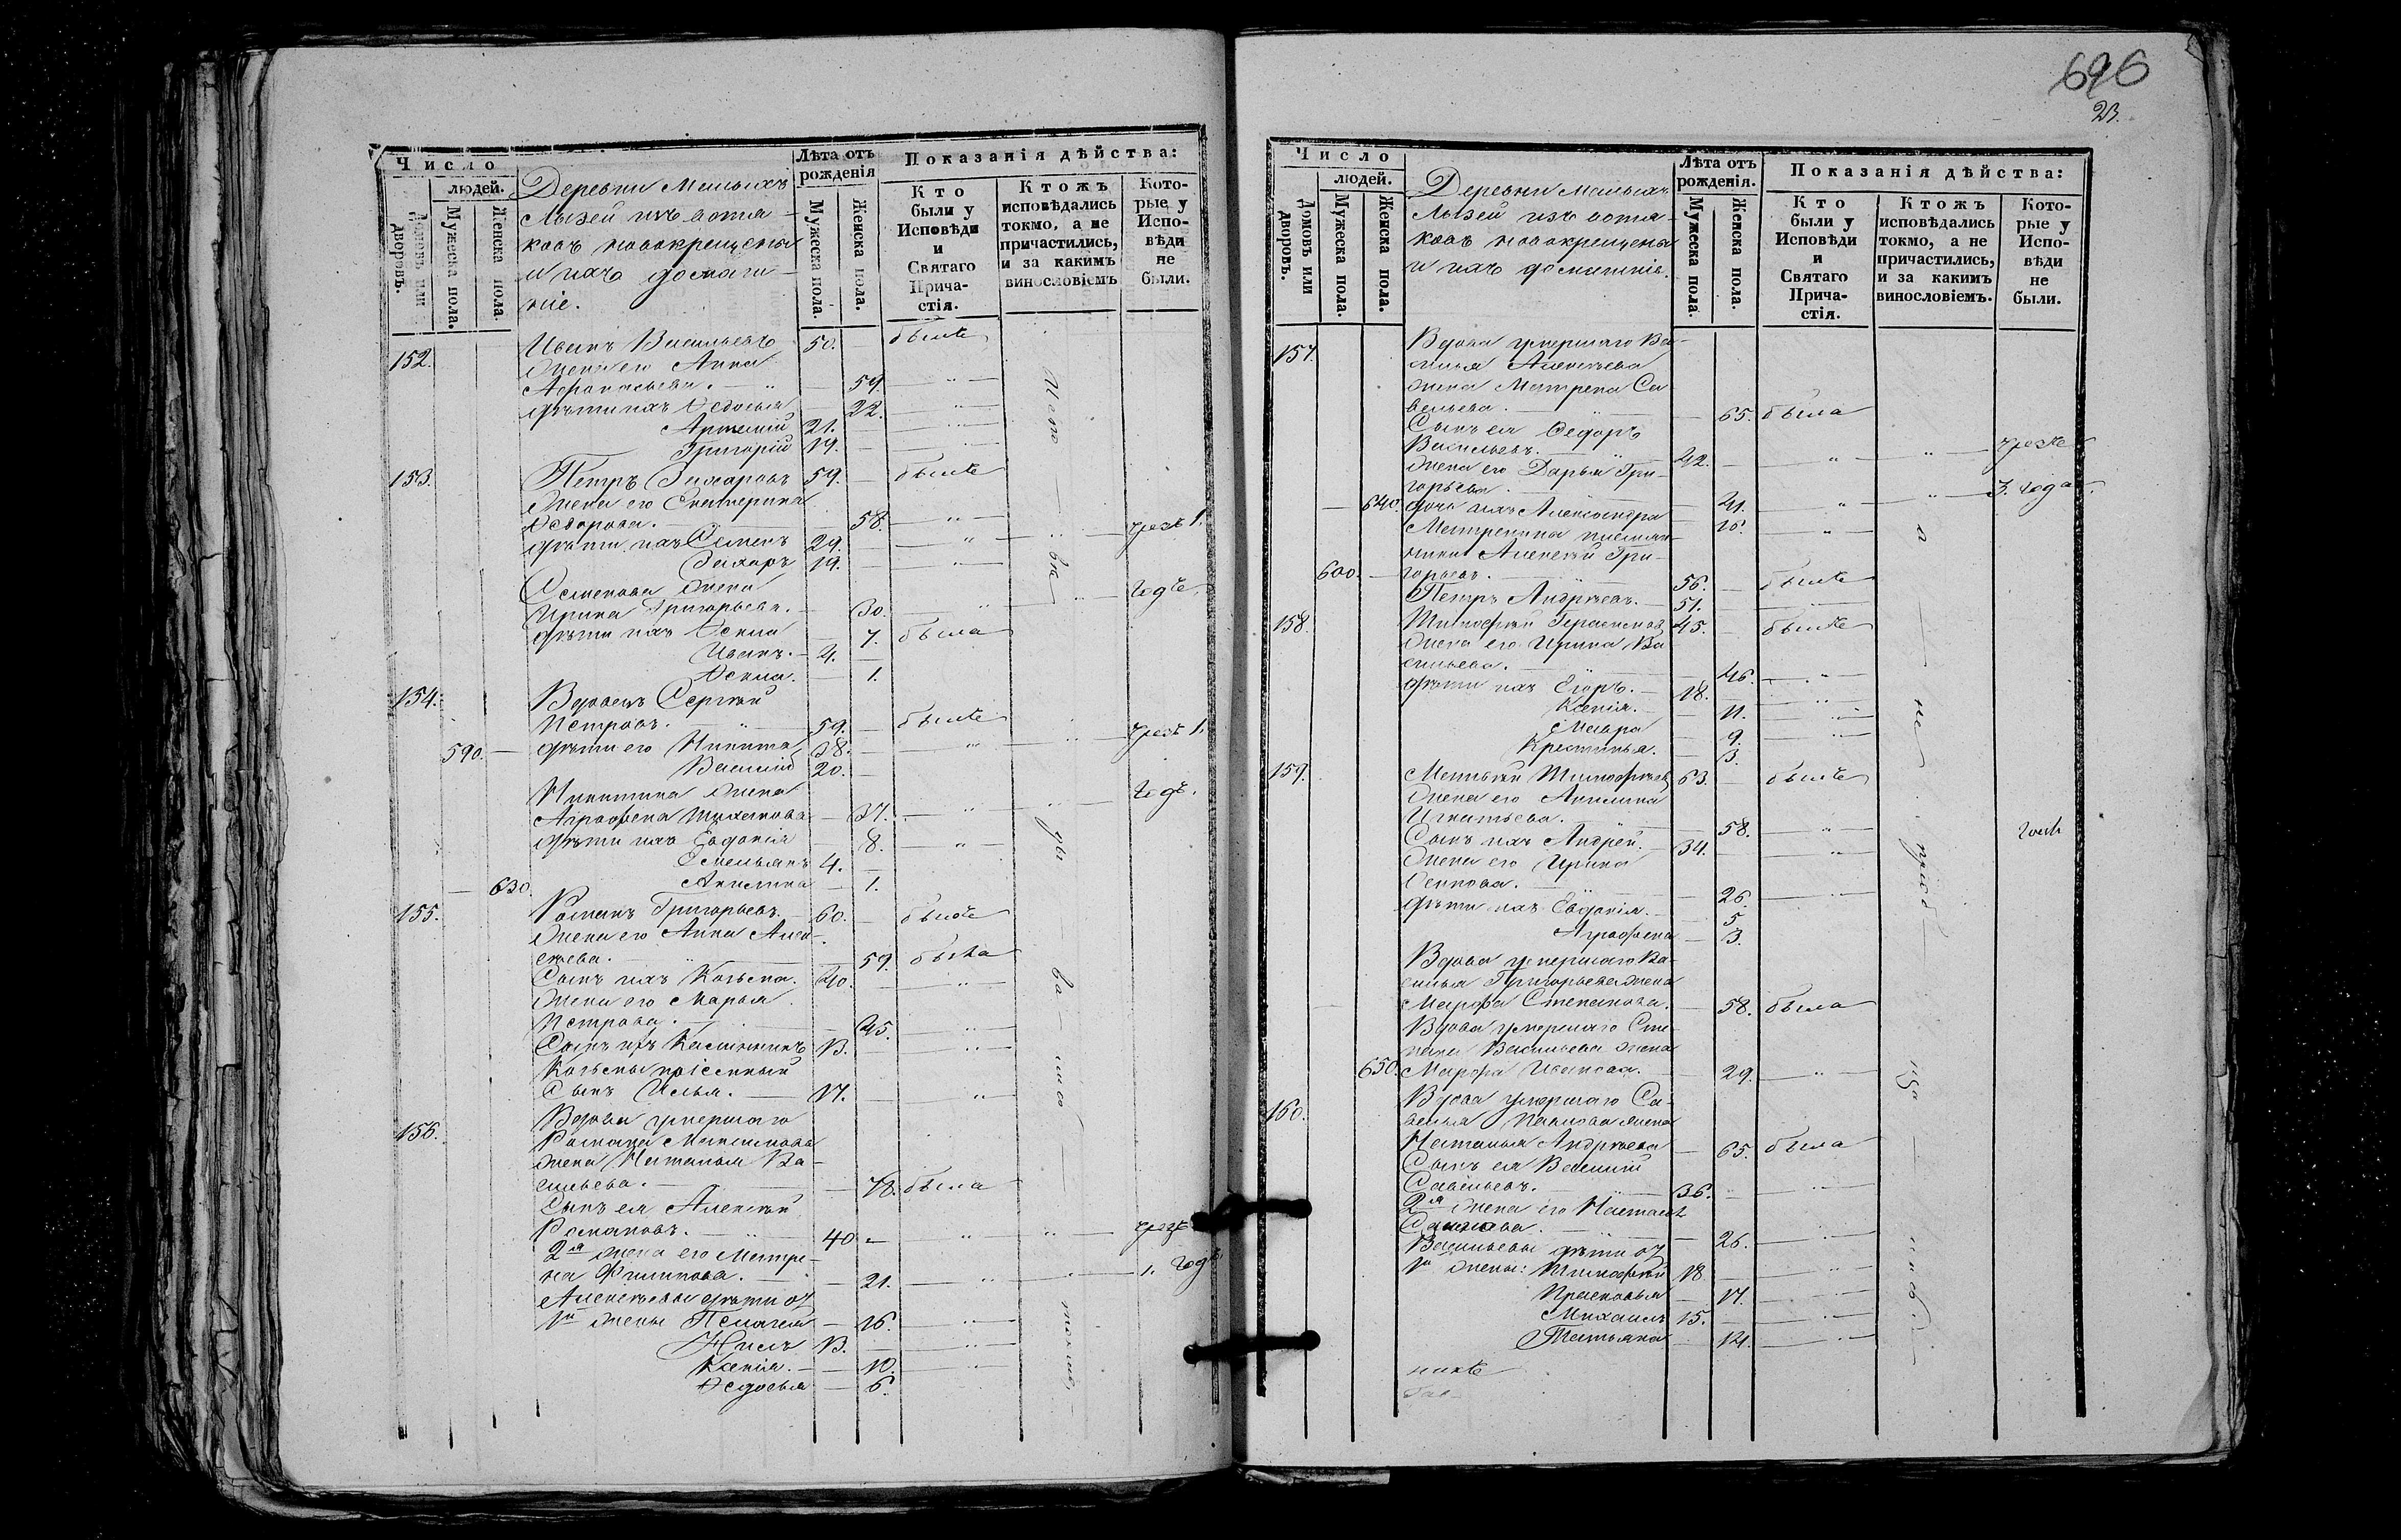 696
23.
Число
людей.
Домовъ или дворовъ.
Мужеска пола.
Женска пола.
Деревни Малыхъ
Лызей изъ вотя-
ковъ новокрещены
и ихъ домаш-
ніе.
Лѣта отъ
рожденія
Мужеска пола.
Женска пола.
Показанія дѣйства:
Кто
были у
Исповѣди
и
Святаго
Прича-
стія.
Ктожъ
исповѣдались
токмо, а не
причастились,
и за какимъ
винословіемъ
Кото-
рые у
Испо-
вѣди
не
были.
152. Иванъ Васильевъ 50. — былъ
Жена его Анна
Афанасьева. — 59. — " —
дѣти ихъ Ѳедосья 22. — " —
Артемій 21. — " —
Григорій 19. — " —
153. Петръ Захаровъ 59. — былъ
Жена его Екатерина
Ѳедорова. — 58. — " —
дѣти ихъ Семенъ 29. — " — чрезъ 1.
Захаръ 19. — " —
Семенова жена
Ирина Григорьева. — 30. — " — годъ.
дѣти ихъ Ѳекла — 7. была
Иванъ. — 4. —
Ѳекла. — 1.
154. Вдовецъ Сергѣй
Петровъ. — 59. — былъ
590. — дѣти его Никита 38. — " — чрезъ 1.
Василій 20. —
Никитина жена годъ.
Аграфена — 37. — " —
дѣти ихъ Евдокія — 8. — " —
Емельянъ 4. —
— 630. Акилина — 1.
155. Романъ Григорьевъ. 60. — былъ
Жена его Анна Алек-
сѣева. — 59. была
Сынъ ихъ Козьма. 40. — " —
Жена его Марья
Петрова. — 45. — " —
Сынъ ихъ 13. — " —
Козьмы пріемный
Сынъ Илья. — 17. — " —
156. Вдова умершаго
Романа Максимова
жена Наталья Ва-
сильева. — 78. была
Сынъ ея Алексѣй
Романовъ. — 40 — " — чрезъ
2я жена его Матре-
на Филипова. — 21. — " — 1. годъ.
Алексѣевы дѣти отъ
1й жены Пелагея — 16. — " —
Нилъ 13. — " —
Ксенія. — 10. — " —
Ѳедосья — 6.
Число
людей.
Домовъ или дворовъ.
Мужеска пола.
Женска пола.
Деревни Малыхъ
Лызей изъ вотя-
ковъ новокрещены
и ихъ домашніе.
Лѣта отъ
рожденія.
Мужеска пола.
Женска пола.
Показанія дѣйства:
Кто
были у
Исповѣди
и
Святаго
Прича-
стія.
Ктожъ
исповѣдались
токмо, а не
причастились,
и за какимъ
винословіемъ.
Кото-
рые у
Испо-
вѣди
не
были.
157. Вдова умершаго Ва-
силья Алексѣева
жена Матрена Са-
вельева. — 65. была
Сынъ ея Ѳедоръ
Васильевъ. — 42. — " — чрезъ
Жена его Дарья Гри-
горьева. — 41. — " — 3. года.
— 640. дочь ихъ Александра — 16. — " —
Матренина племян-
никъ Алексѣй Гри-
600. — горьевъ. — 56. — былъ
Петръ Андрѣевъ. — 51. — " —
158. Тимофѣй Герасимовъ 45. — былъ
Жена его Ирина Ва-
сильева. — 46. — " —
дѣти ихъ Егоръ. — 18. — " —
Ксенія. — 11. — " —
Мавра — 9. — " —
Крестинья. — 3.
159. Матвѣй Тимофѣевъ 63. — былъ
Жена его Акилина
Игнатьева. — 58. — " —
Сынъ ихъ Андрей. — 34. — " —
Жена его Ирина
Осипова. — 26. — " —
дѣти ихъ Евдокія. — 5
Аграфена — 3.
Вдова умершаго Ва-
силья Григорьева жена
Марфа Степанова. — 58. была
Вдова умершаго Сте-
пана Васильева жена
650. Марфа Иванова. — 29. — " —
160. Вдова умершаго Са-
велья жена
Наталья Андрѣева — 65. была
Сынъ ея Василій
Савельевъ. — 36. — " —
2я жена его Настасья
— 26. — " —
Васильевы дѣти отъ
1й жены: Тимофѣй 18 — " —
Прасковья — 17. — " —
Михаилъ 15. — " —
Татьяна — 14. — " —